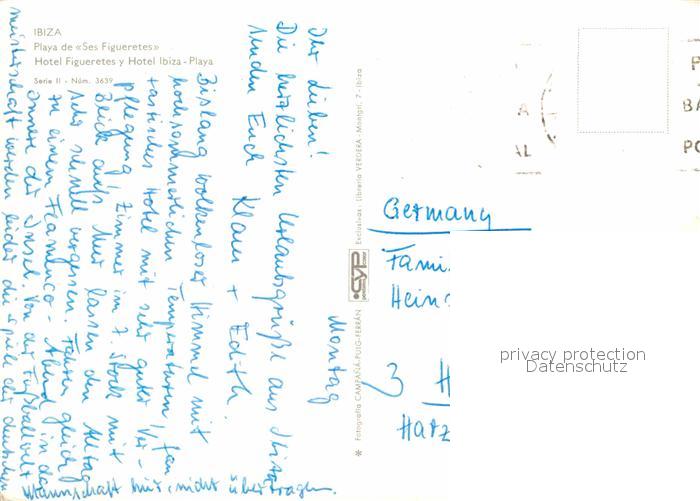 IBIZA
Playa de «Ses Figueretes»
Hotel Figueretes y Hotel Ibiza - Playa
Serie II - Núm. 3639
Montag
Ihr Lieben!
Die herzlichsten Urlaubsgrüße aus Ibiza
senden Euch Klaus + Edith.
Bislang wolkenloser Himmel mit
hochsommerlichen Temperaturen, fan
tastisches Hotel mit sehr guter Ver-
pflegung, Zimmer im 7. Stock mit
Blick aufs Meer lassen den Alltag
sehr schnell vergessen. Fahren gleich
zu einem Flamenco-Abend in das
Innere der Insel. Von der Fußballwelt
meisterschaft werden leider die Spiele der deutschen
Mannschaft hier nicht übertragen.
* Fotografía CAMPAÑÁ-PUIG-FERRÁN
CYP
Exclusivas - Librería VERDERA - Montgrí, 7 - Ibiza
A
AL
P
BA
PO
Germany
Fami
Hein
3 H
Harz
privacy protection
Datenschutz